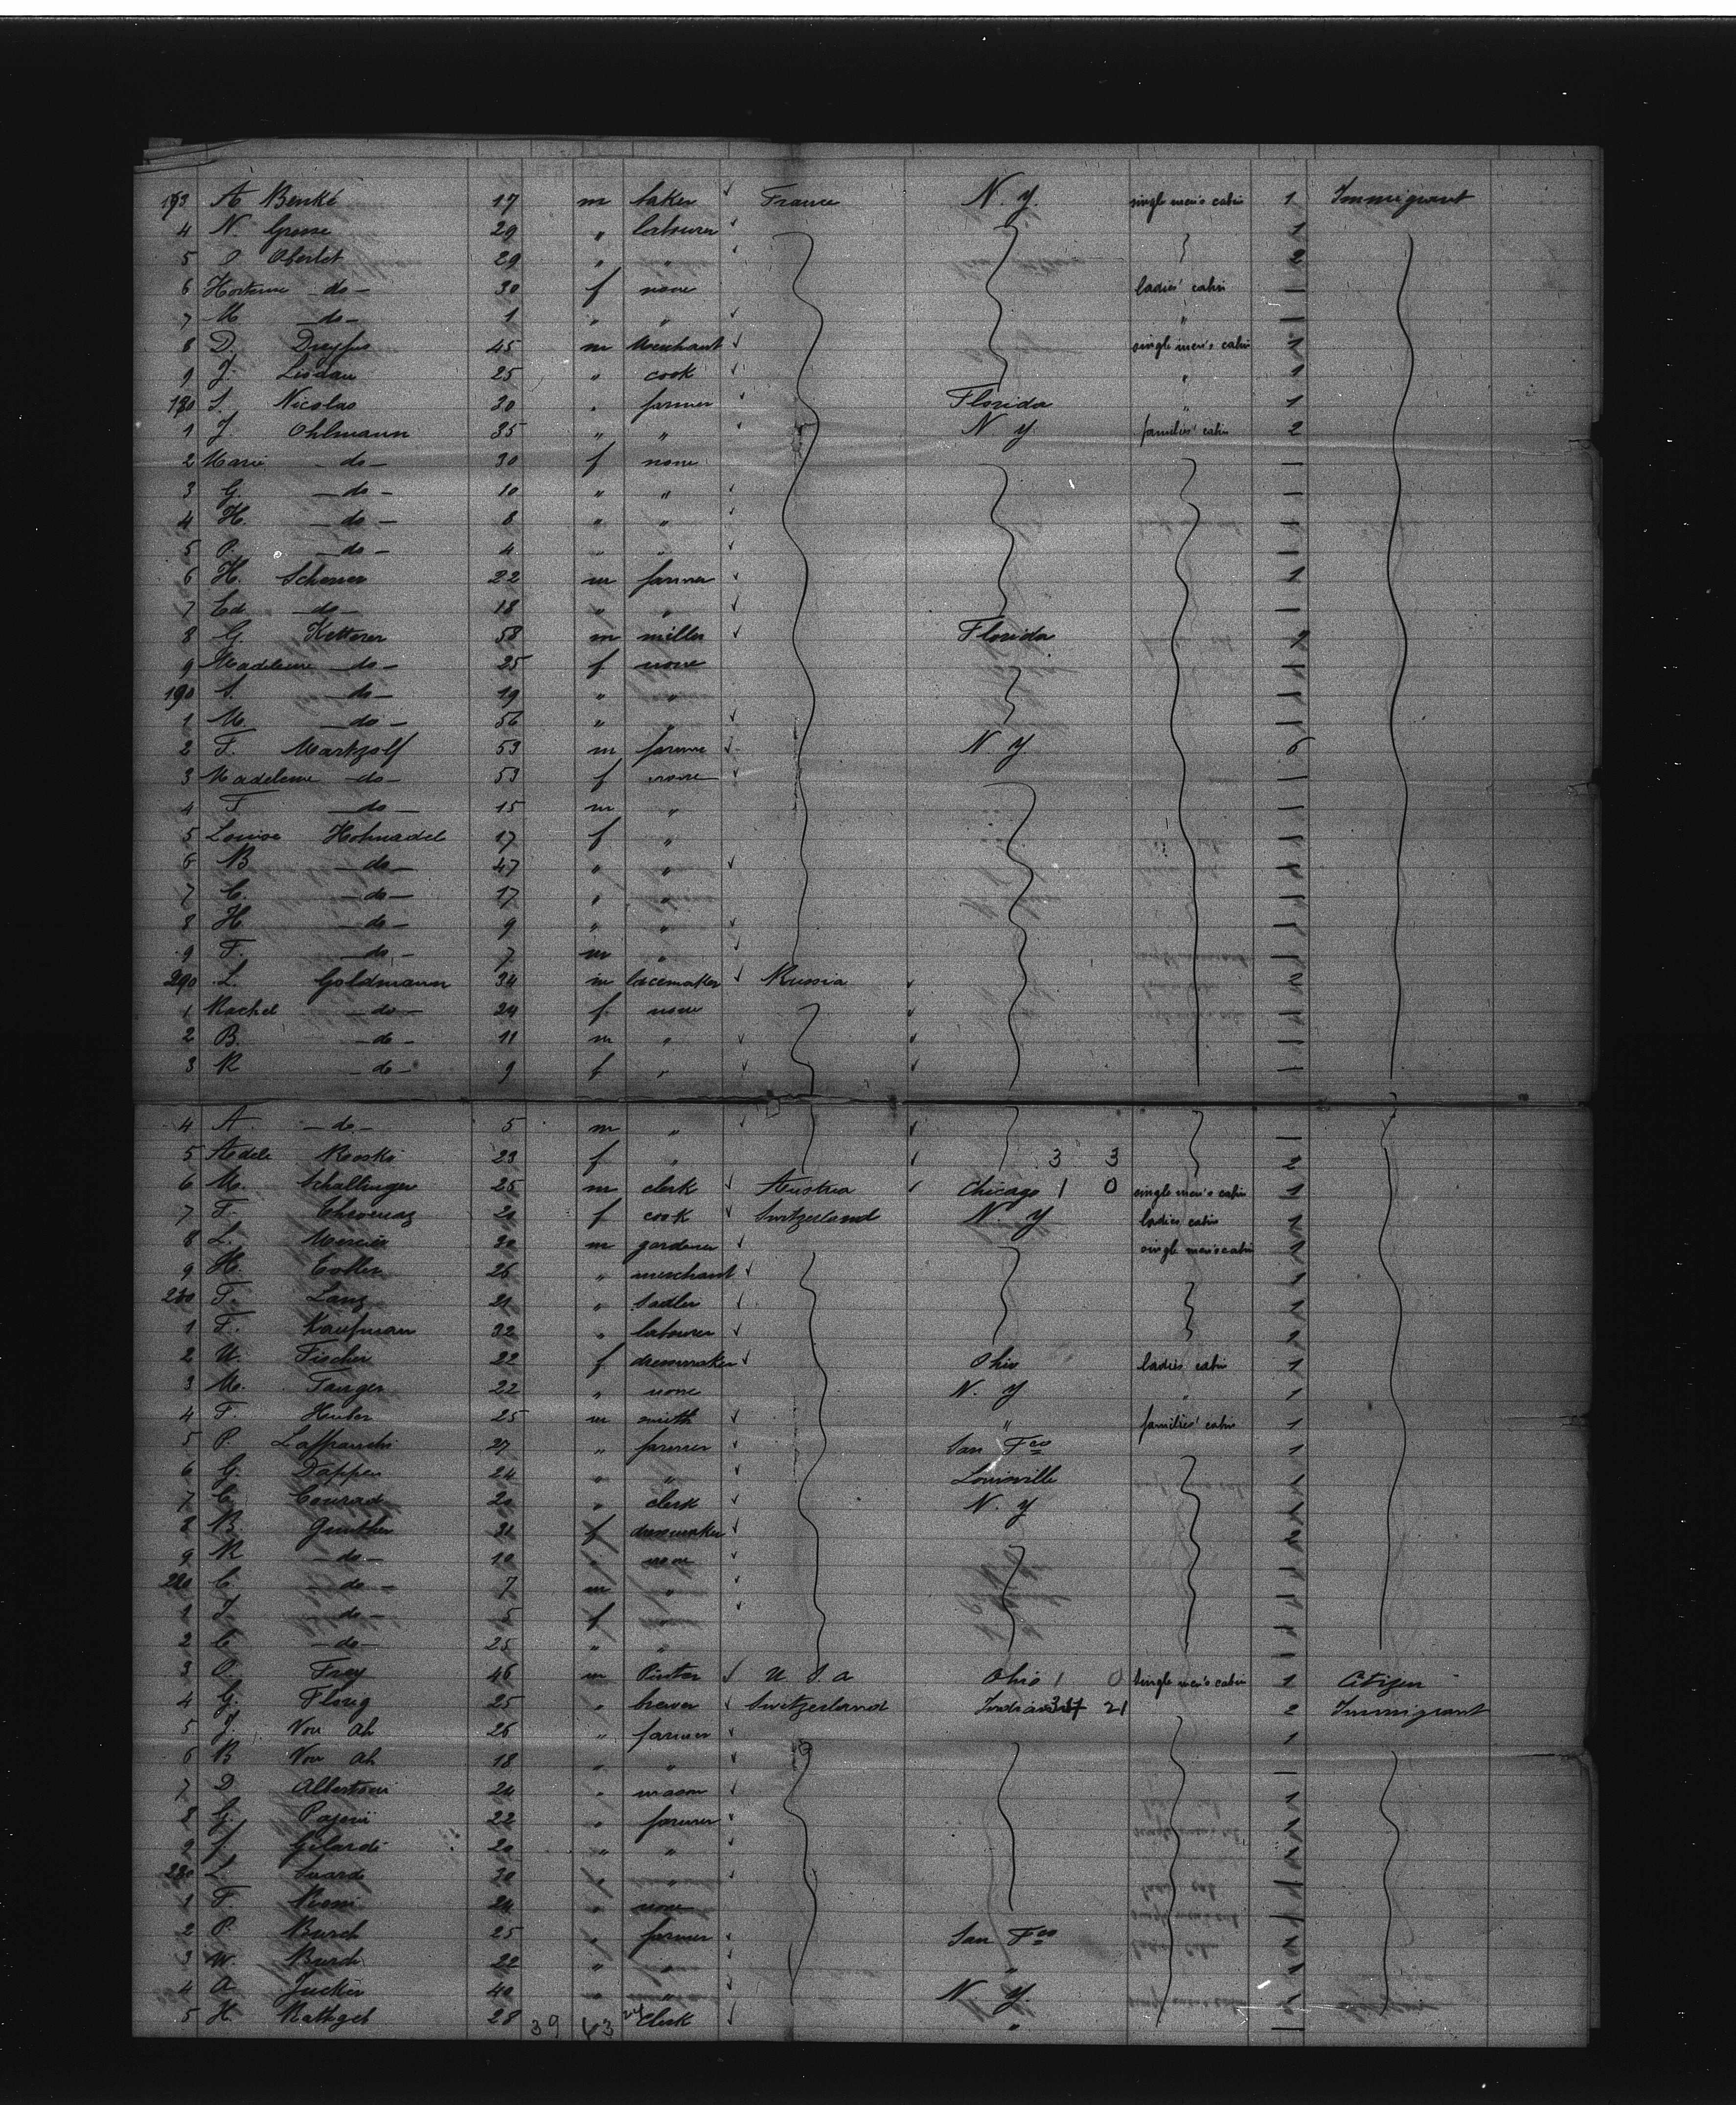 193 A Benké 17 m baker ✓ France N. Y. single men's cabin 1 Immigrant
4 N Grosse 29 " labourer ✓ 1
5 Oberlet 29 " " ✓ 2
6 Hortense do 30 f none ladies' cabin —
7 M do 1 " " ✓ " —
8 D. Dreyfus 45 m Merchant ✓ single men's cabin 1
9 J. Lisdau 25 " cook ✓ " 1
180 S. Nicolas 30 " farmer ✓ Florida " 1
1 J. Ohlmann 35 " " ✓ N Y. families' cabin 2
2 Marie do 30 f none —
3 G. do 10 " " ✓ —
4 H. do 8 " " ✓ —
5 P. do 4 " " ✓ —
6 H. Scherrer 22 m farmer ✓ 1
7 Ed do 18 " " ✓ —
8 G. Ketterer 58 m miller ✓ Florida
9 Madeleine do 25 f none
190 S. do 19 " "
1 M. do 56 " " ✓
2 F. Markzolf 53 m farmer ✓ N. Y. 6
3 Madeleine do 53 f none ✓ —
4 F do 15 m " —
5 Louise Hohnadel 17 f "
6 B do 47 " " ✓
7 C. do 17 " "
8 H do 9 " " ✓
9 F. do 7 m " ✓
200 L. Goldmann 34 m lacemaker ✓ Russia ✓ 2
1 Rachel do 24 f none ✓
2 B. do 11 m " ✓ ✓
3 R do 9 f " ✓ ✓
4 A do 5 m " ✓ ✓ —
5 Adele Rooski 23 f " ✓ 3 3 2
6 M. Schallinger 25 m clerk ✓ Austria ✓ Chicago 1 0 single men's cabin 1
7 F. 20 f cook ✓ Switzerland N. Y ladies cabin 1
8 L. Mercier 30 m gardener ✓ single men's cabin 1
9 H. Cotter 26 " merchant ✓ 1
210 F. Lanz 21 " Sadler ✓ 1
1 F. Kaufman 32 " labourer ✓ 2
2 M. Fischer 22 f dressmaker ✓ Ohio ladies cabin 1
3 M. Tanger 22 " none N. Y " 1
4 F. Huber 25 m smith ✓ " families' cabin 1
5 P. Laffranchi 27 " farmer ✓ San Fco 1
6 G. Dappen 24 " " ✓ Louisville 1
7 C. Conrad 20 " clerk ✓ N. Y 1
8 B. Gunther 31 f dressmaker ✓
9 R do 10 " none ✓
220 C. do 7 m " ✓
1 J. do 5 f " ✓
2 C do 25 " "
3 O. Frey 46 m ✓ U. S. a Ohio 1 0 single men's cabin 1 Citizen
4 G. Flurig 25 " brewer ✓ Switzerland Indiana 21 2 Immigrant
5 J. Von Ah 26 " farmer ✓ 1
6 B Von Ah 18 " " ✓ —
7 D Albertoni 24 " mason ✓ 1
8 G. 22 " farmer ✓ 1
9 J Gilardi 20 " " ✓ 1
230 L. Suardi 30 " " ✓
1 F. 24 " none ✓
2 P. Bursch 25 " farmer ✓ San Fco
3 W. Bursch 22 " " ✓ " 1
4 A Jucker 40 " " ✓ N Y
5 H. Rathgeb 28 39 63 clerk ✓ " —